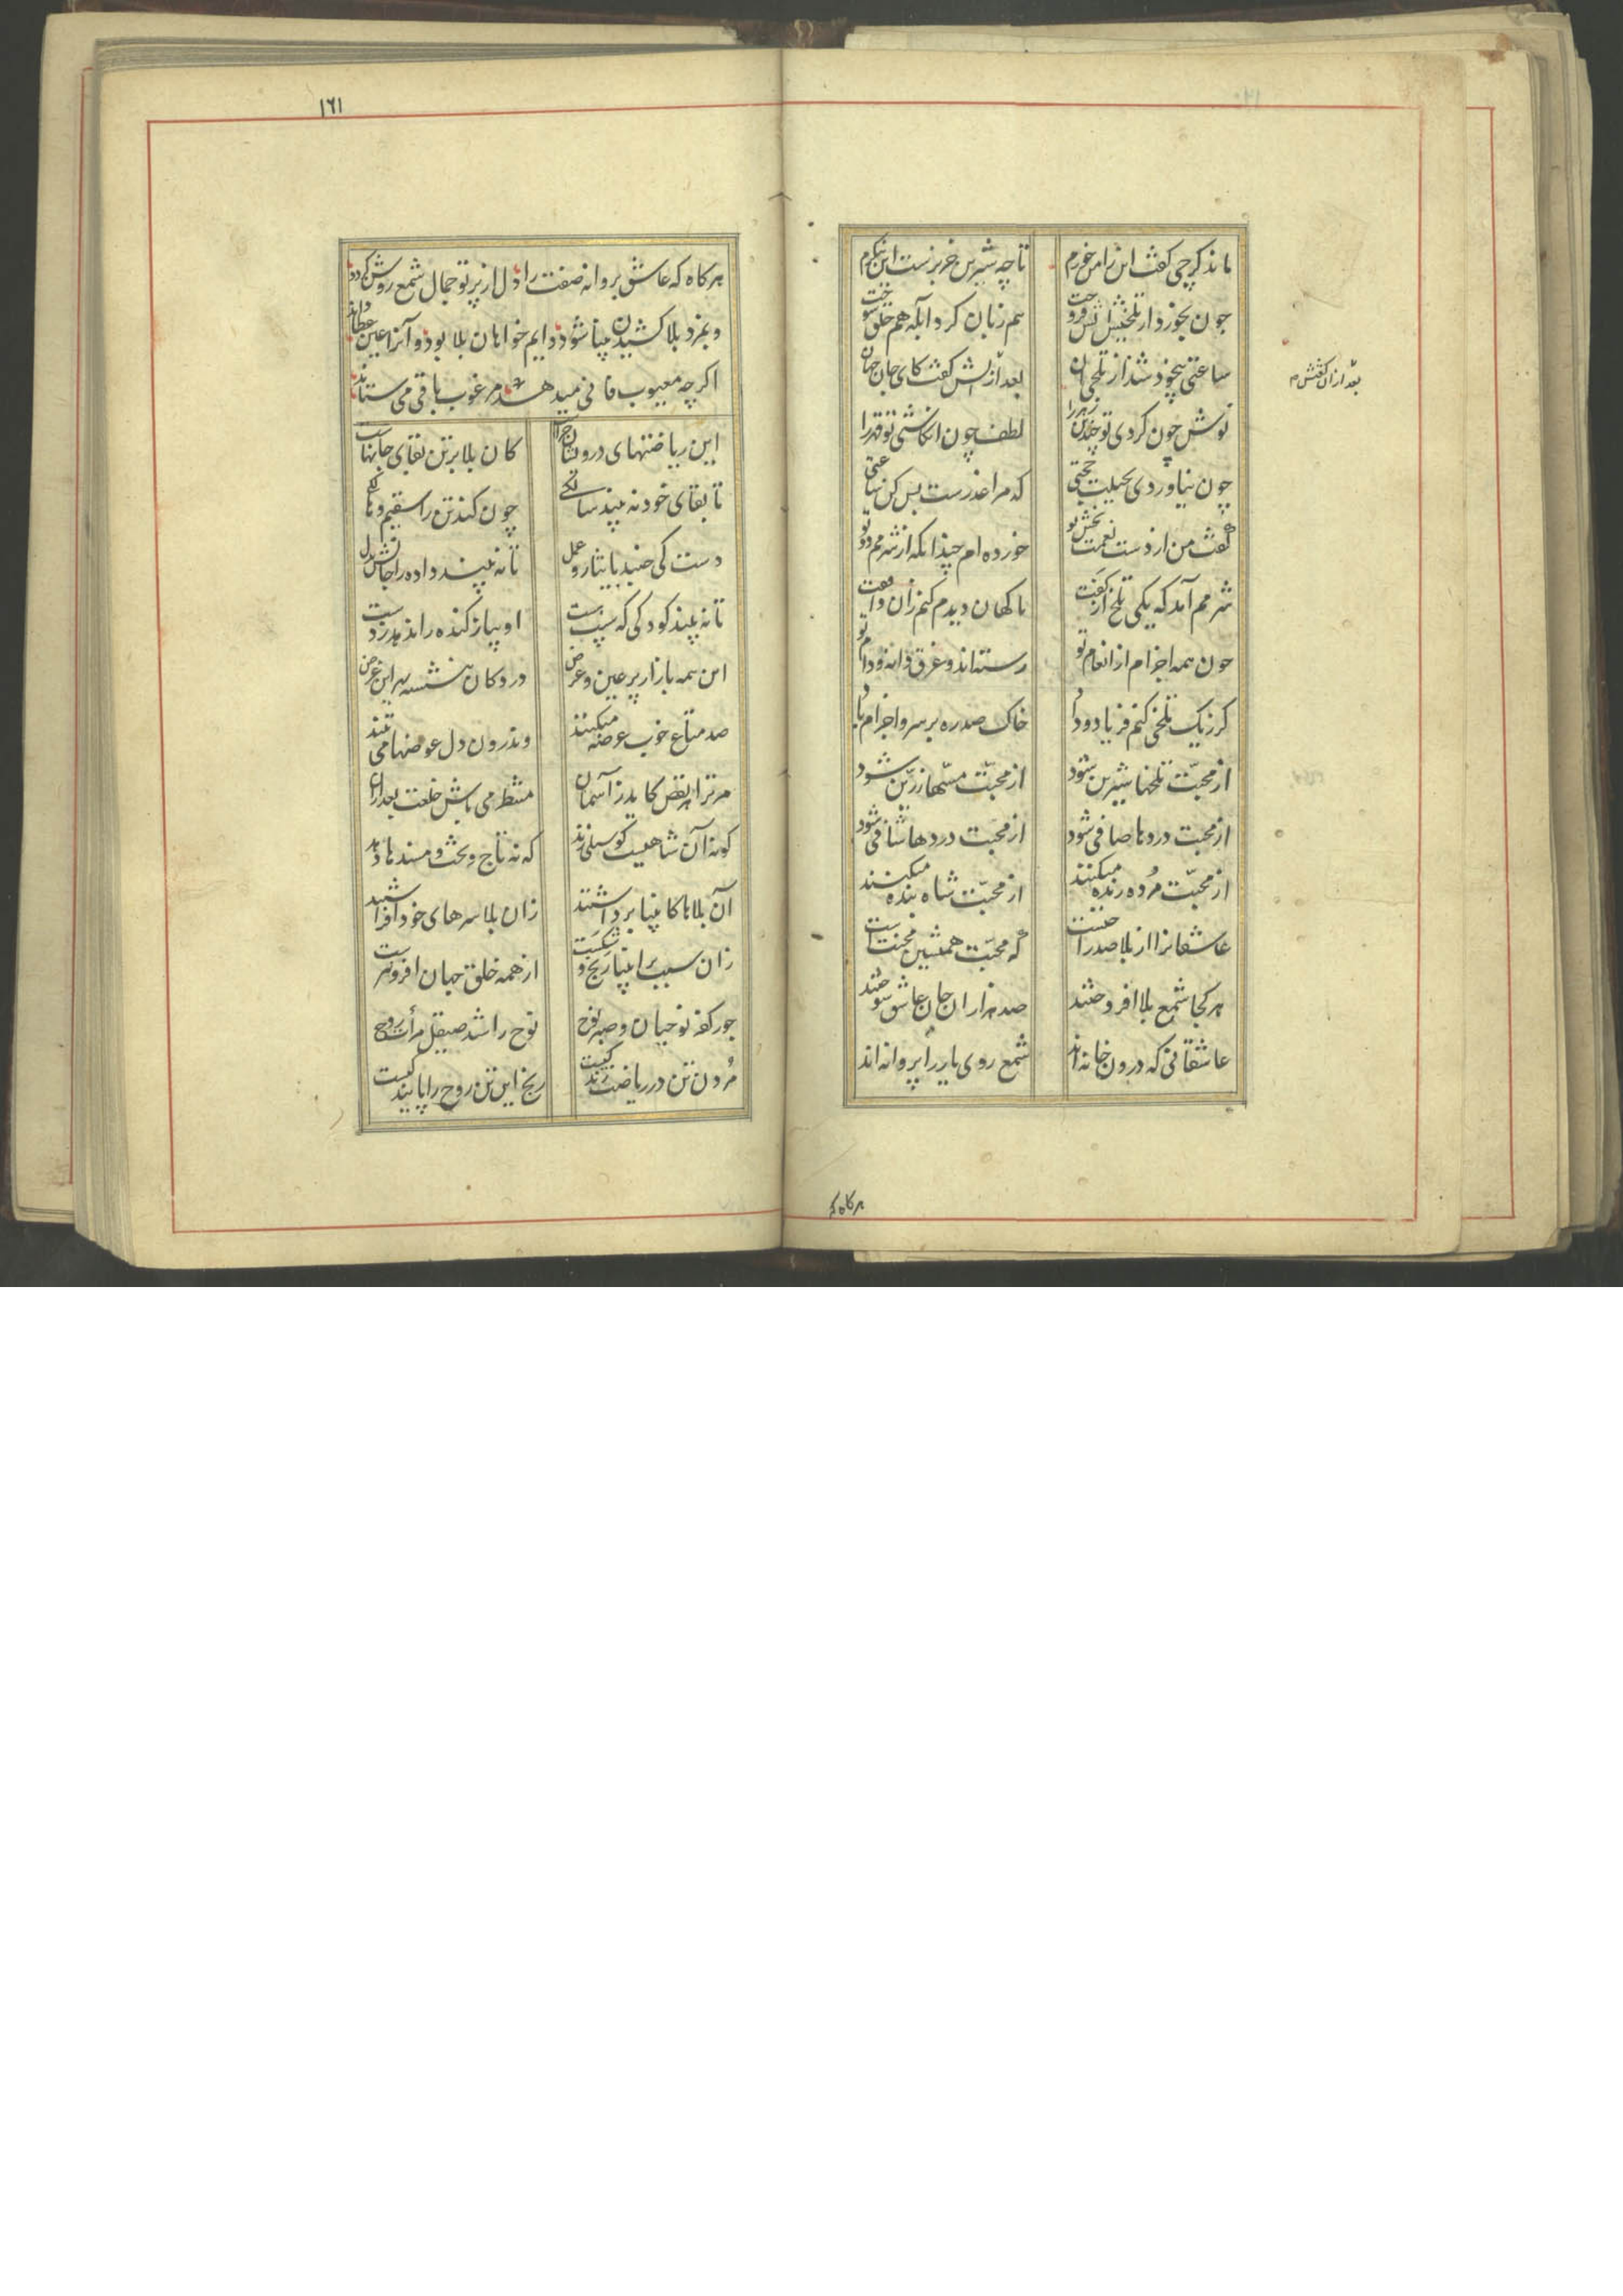 ماند کرچی کفت این را من خورم
تا چه شیرین خربزست این بنکرم
چون بخورد از تلخیش آتش فروخت
هم زبان کرد آبله هم حلق سوخت
ساعتی بیخود شد از تلخی آن
بعد از آنش کفت کای جان جهان
نوش چون کردی تو چندین زهر را
لطف چون انکاشتی تو قهر را
چون نیاوردی بحیلت حجتی
که مرا عذرست بس کن ساعتی
کفت من از دست نعمت بخش تو
خورده ام چندانکه از شرمم دوتو
شرمم آمد که یکی تلخ از کفت
ناکهان دیدم کنم زان واقفت
چون همه اجزام از انعام تو
رسته اند و غرق دانه و دام تو
کر ز یک تلخی کنم فریاد و داد
خاک صد ره بر سر و اجزام باد
از محبّت تلخها شیرین شود
از محبّت مسّها زرّین شود
از محبت دردها صافی شود
از محبت دردها شافی شود
از محبّت مُرده زنده میکنند
از محبّت شاه بنده میکنند
عاشقانرا از بلا صد راحتست
که محبّت همنشین محنت است
هر کجا شمع بلا افروختند
صد هزاران جان عاشق سوختند
عاشقانی که درون خانه اند
شمع روی یار را پروانه اند
بعد از آن کفتش م
هرکاه که
۱۶۱
هرکاه که عاشق پروانه صفت را دل از پرتو جمال شمع روش کردد
وبمزد بلا کشیدن بینا شود دایم خواهان بلا بود و آنرا عین عطا داند
اکرچه معیوب فانی میدهد مرغوب باقی می ستاند
این ریاضتهای درویشان چراست
کان بلا بر تن بقای جانهاست
تا بقای خود نه بیند سالکی
چون کند تن را سقیم و هالکی
دست کی جنبد بایثار و عمل
تا نه بیند داده را جانش بدل
تا نه بیند کودکی که سیب هست
او پیاز کنده را ندهد ز دست
این همه بازار پر عین و عرض
در دکان بنشسته بر این غرض
صد متاع خوب عرضه میکنند
وندرون دل عوضها می تنند
مر ترا هر نقض کاید ز آسمان
منتظر می باش خلعت بعد از آن
کونه آن شاهیست کو سیلی زند
که نه تاج و تخت و مسندها دهد
آن بلاها کانبیا برداشتند
زان بلا سرهای خود افراشتند
زان سبب بر انبیا رنج و شکست
از همه خلق جهان افزونترست
جور کفر نوحیان و صبر نوح
نوح را شد صیقل مرآت روح
مُردن تن در ریاضت زندکیست
رنج این تن روح را پایندکیست